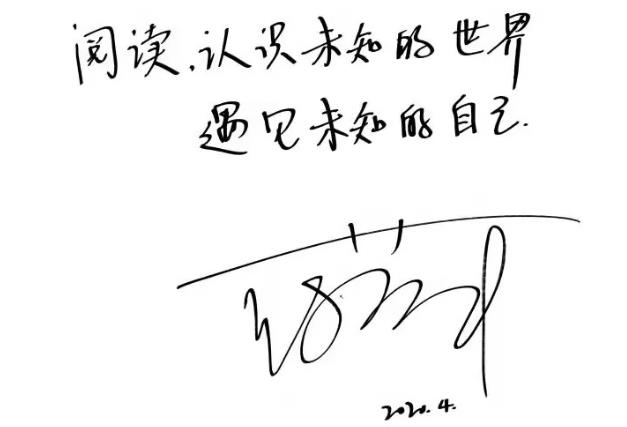 阅读,认识未知的世界
遇见未知的自己.
2020.4.